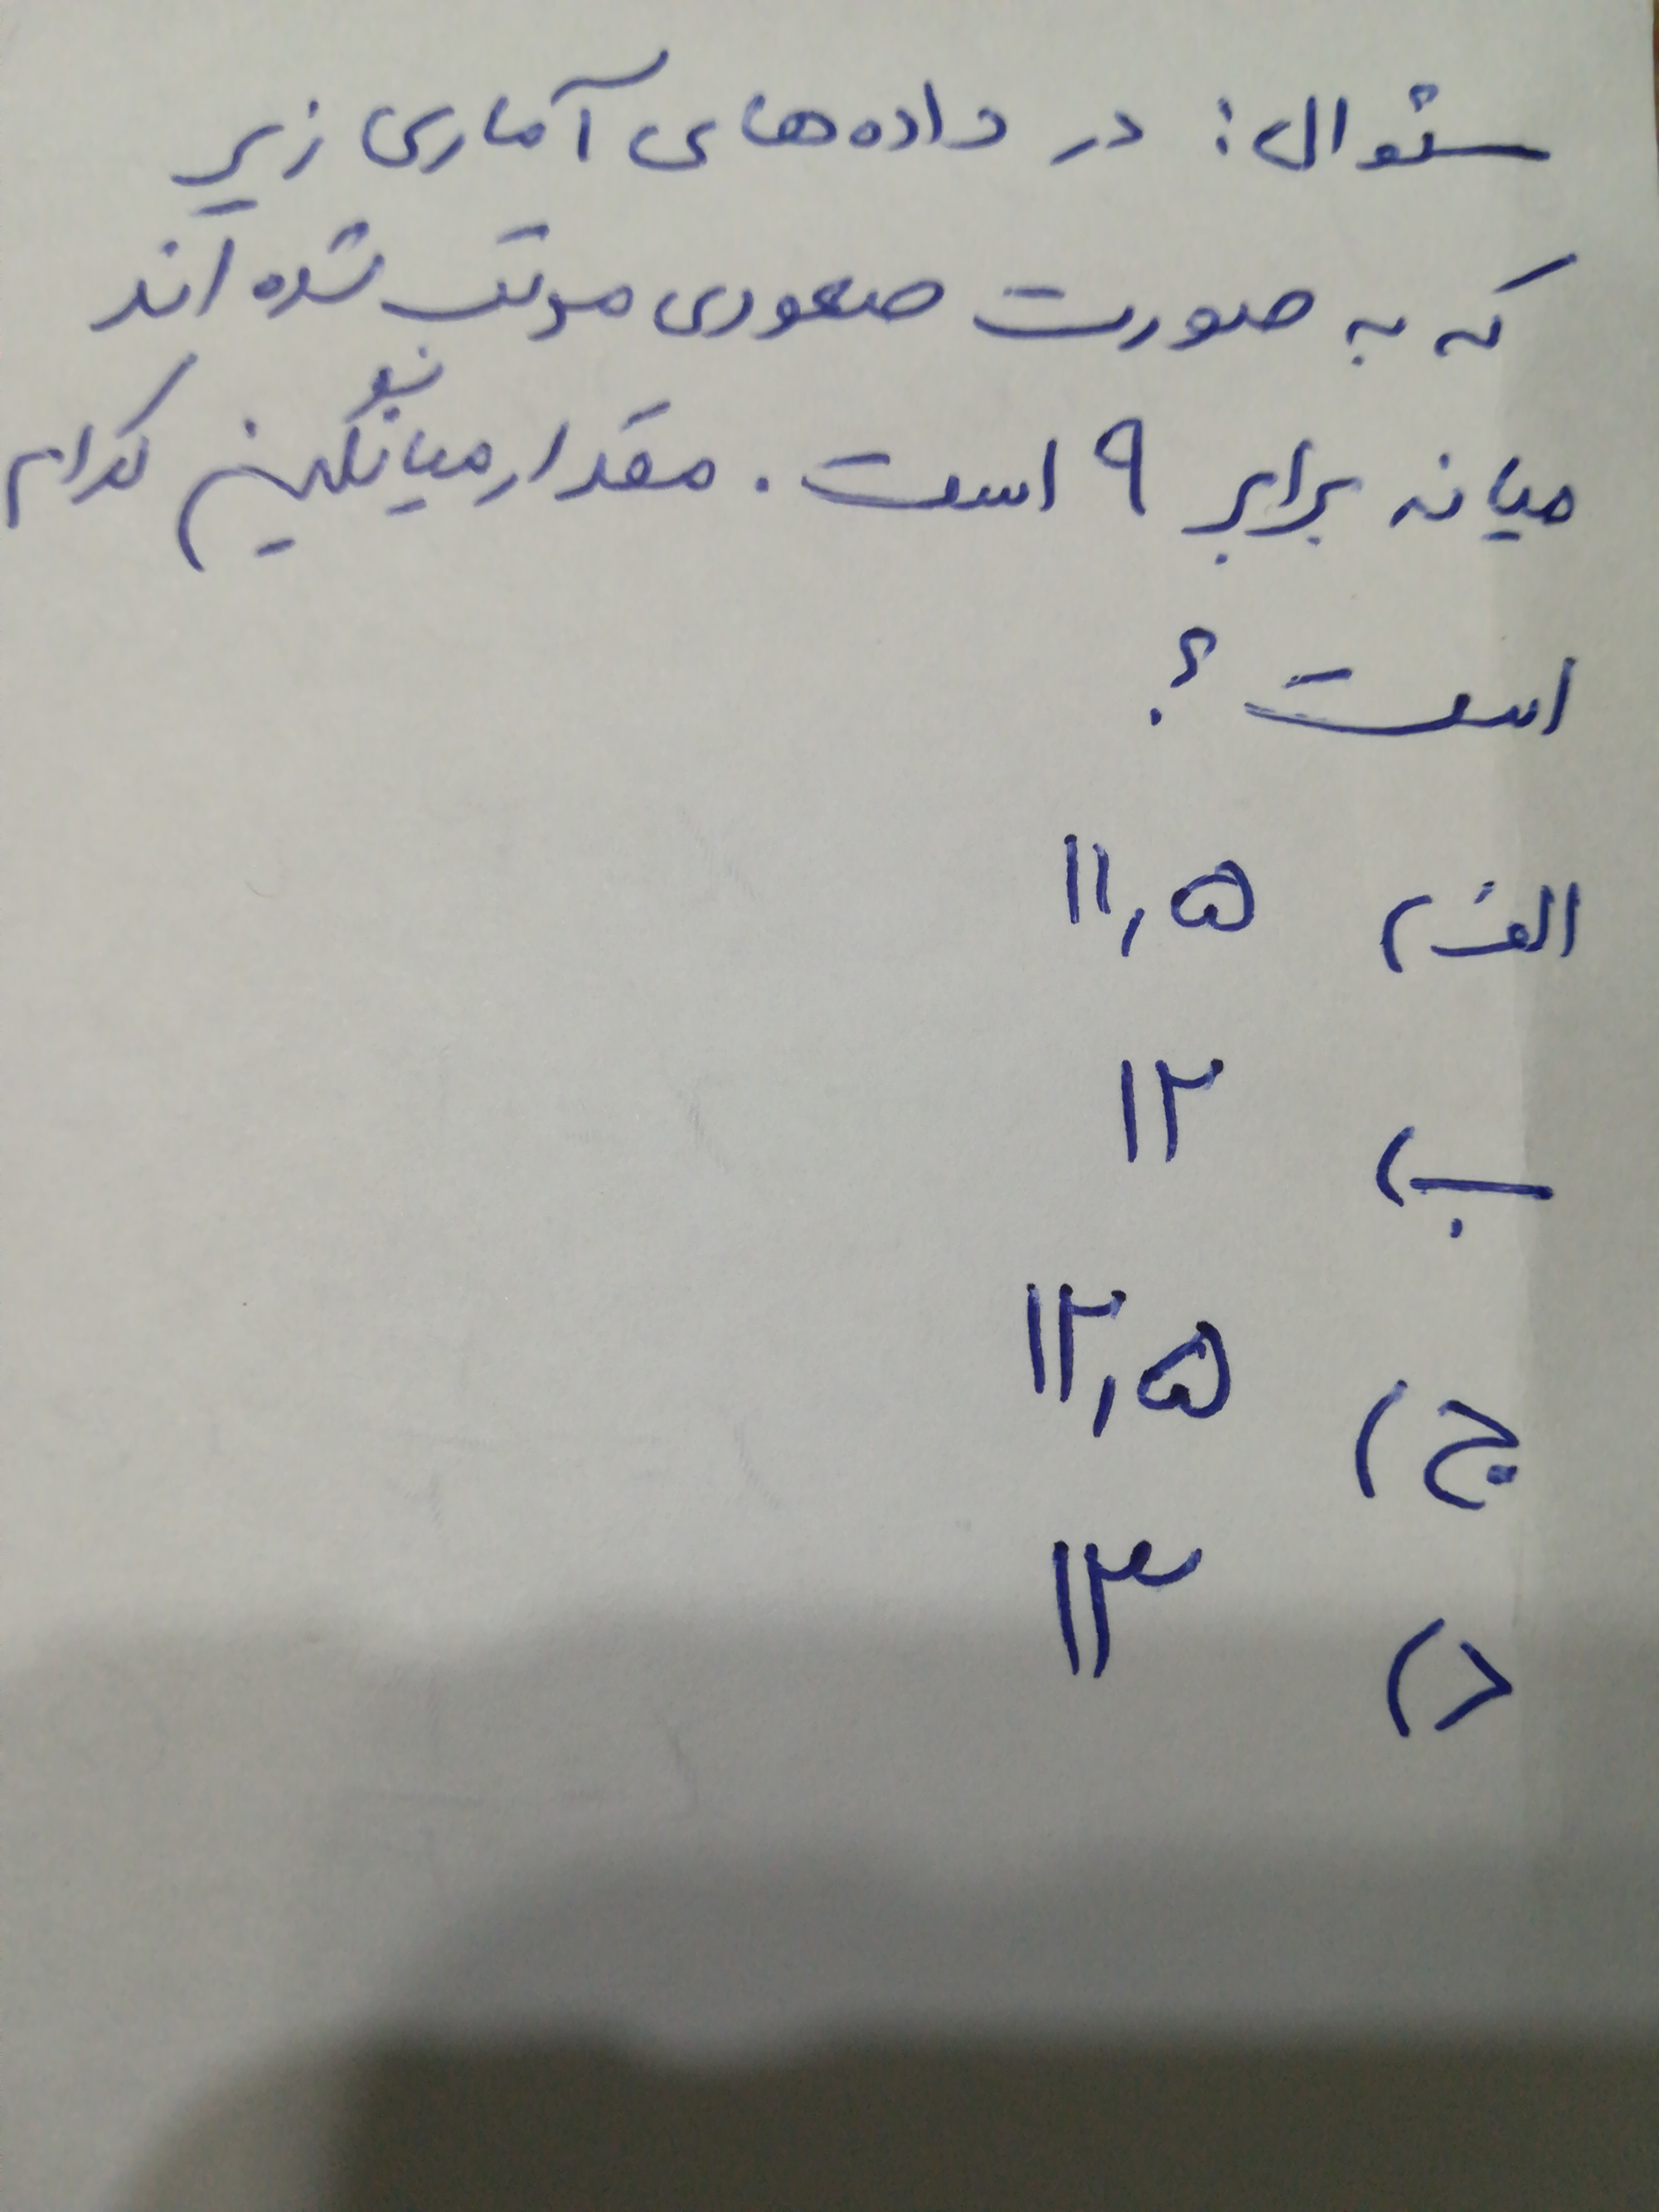 سئوال: در داده‌های آماری زیر
که به صورت صعودی مرتب شده اند
میانه برابر ۹ است. مقدار میانگین کدام
است ؟
الف) ۱۱,۵
ب) ۱۲
ج) ۱۲,۵
د) ۱۳